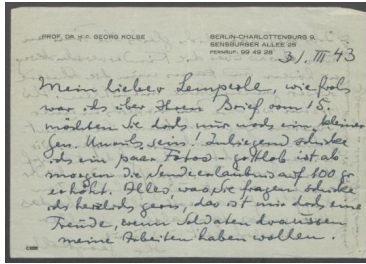 PROF. DR. H. C. GEORG KOLBE
BERLIN-CHARLOTTENBURG 9,
SENSBURGER ALLEE 26
FERNRUF: 99 49 28
31. III 43
Mein lieber Lemperle, wie froh
war ich über Ihren Brief vom 15.
möchten Sie doch nur noch ein kleiner
Gen. sein! Inliegend schicke
ich ein paar Fotos - gottlob ist ab
morgen die Sendeerlaubnis auf 100 gr
erhöht. Alles was Sie fragen schicke
ich herzlich gern, das ist mir doch eine
Freude, wenn Soldaten draussen
meine Arbeiten haben wollen.